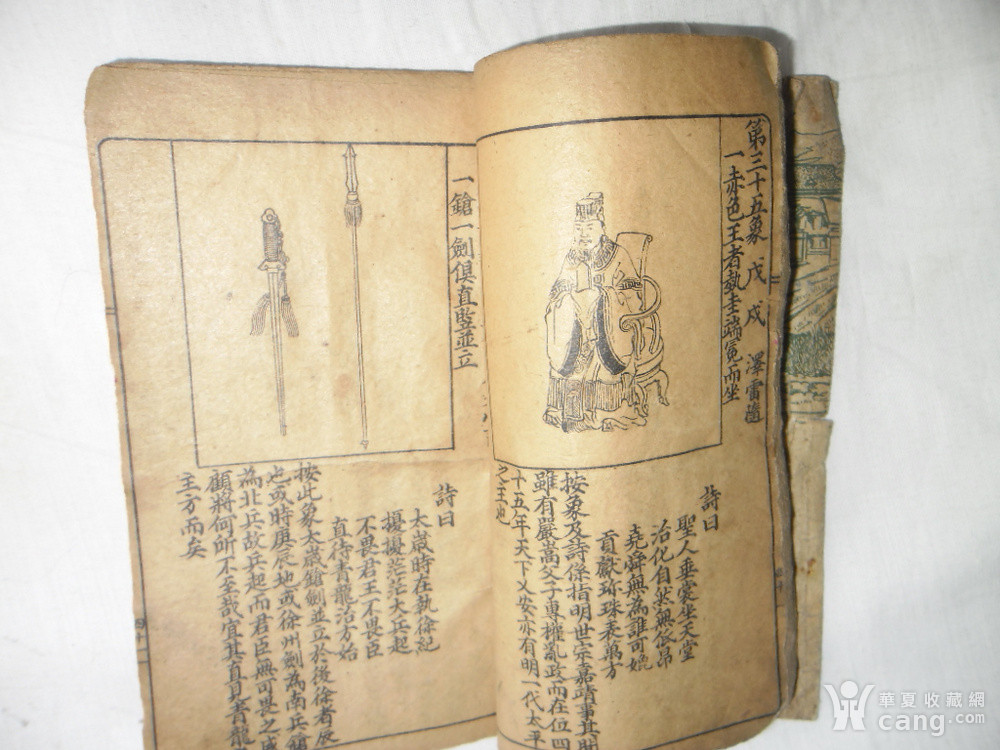 第三十五象 戊戌 澤雷隨
一赤色王者執圭端冕而坐
詩曰
聖人垂裳坐天堂
治化自然無俗昂
堯舜無為誰可媲
貢獻珍珠表萬方
按象及詩係指明世宗嘉靖事其時
雖有嚴嵩父子專權亂政而在位四
十五年天下乂安亦有明一代太平
之王也
一鎗一劍俱直豎並立
詩曰
太歲時在執徐紀
擾擾茫茫大兵起
不畏君王不畏臣
直待青龍治方始
按此象太歲鎗劍並立於後徐者辰
也或時庚辰地或徐州劍為南兵鎗
為北兵故兵起而君臣無可畏之威
顧將何所不至哉宜其直見青龍
主方而矣
四十
華夏收藏網
cang.com